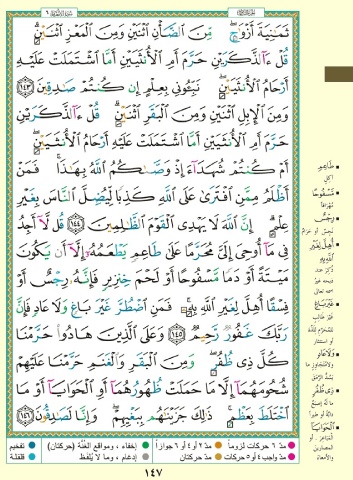 سورة الأنعام ٦
ثَمَٰنِيَةَ أَزْوَٰجٍ مِّنَ ٱلضَّأْنِ ٱثْنَيْنِ وَمِنَ ٱلْمَعْزِ ٱثْنَيْنِ
قُلْ ءَآلذَّكَرَيْنِ حَرَّمَ أَمِ ٱلْأُنثَيَيْنِ أَمَّا ٱشْتَمَلَتْ عَلَيْهِ
أَرْحَامُ ٱلْأُنثَيَيْنِ نَبِّـُٔونِى بِعِلْمٍ إِن كُنتُمْ صَٰدِقِينَ ١٤٣
وَمِنَ ٱلْإِبِلِ ٱثْنَيْنِ وَمِنَ ٱلْبَقَرِ ٱثْنَيْنِ قُلْ ءَآلذَّكَرَيْنِ
حَرَّمَ أَمِ ٱلْأُنثَيَيْنِ أَمَّا ٱشْتَمَلَتْ عَلَيْهِ أَرْحَامُ ٱلْأُنثَيَيْنِ
أَمْ كُنتُمْ شُهَدَآءَ إِذْ وَصَّىٰكُمُ ٱللَّهُ بِهَٰذَا فَمَنْ
أَظْلَمُ مِمَّنِ ٱفْتَرَىٰ عَلَى ٱللَّهِ كَذِبًا لِّيُضِلَّ ٱلنَّاسَ بِغَيْرِ
عِلْمٍ إِنَّ ٱللَّهَ لَا يَهْدِى ٱلْقَوْمَ ٱلظَّٰلِمِينَ ١٤٤ قُل لَّآ أَجِدُ
فِى مَآ أُوحِىَ إِلَىَّ مُحَرَّمًا عَلَىٰ طَاعِمٍ يَطْعَمُهُۥٓ إِلَّآ أَن يَكُونَ
مَيْتَةً أَوْ دَمًا مَّسْفُوحًا أَوْ لَحْمَ خِنزِيرٍ فَإِنَّهُۥ رِجْسٌ أَوْ
فِسْقًا أُهِلَّ لِغَيْرِ ٱللَّهِ بِهِۦ فَمَنِ ٱضْطُرَّ غَيْرَ بَاغٍ وَلَا عَادٍ فَإِنَّ
رَبَّكَ غَفُورٌ رَّحِيمٌ ١٤٥ وَعَلَى ٱلَّذِينَ هَادُوا۟ حَرَّمْنَا
كُلَّ ذِى ظُفُرٍ وَمِنَ ٱلْبَقَرِ وَٱلْغَنَمِ حَرَّمْنَا عَلَيْهِمْ
شُحُومَهُمَآ إِلَّا مَا حَمَلَتْ ظُهُورُهُمَآ أَوِ ٱلْحَوَايَآ أَوْ مَا
ٱخْتَلَطَ بِعَظْمٍ ذَٰلِكَ جَزَيْنَٰهُم بِبَغْيِهِمْ وَإِنَّا لَصَٰدِقُونَ ١٤٦
طاعم
آكل
مسفوحا
مهراقا
رجس
أهل لغير
الله به
غير باغ
ولا عاد
ذي ظفر
الحوايا
مدّ ٦ حركات لزوماً مدّ ٢ أو ٤ أو ٦ جوازاً إخفاء، ومواقع الغُنَّة (حركتان) تفخيم
مدّ واجب ٤ أو ٥ حركات مدّ حركتان إدغام، وما لا يُلفَظ قلقلة
١٤٧